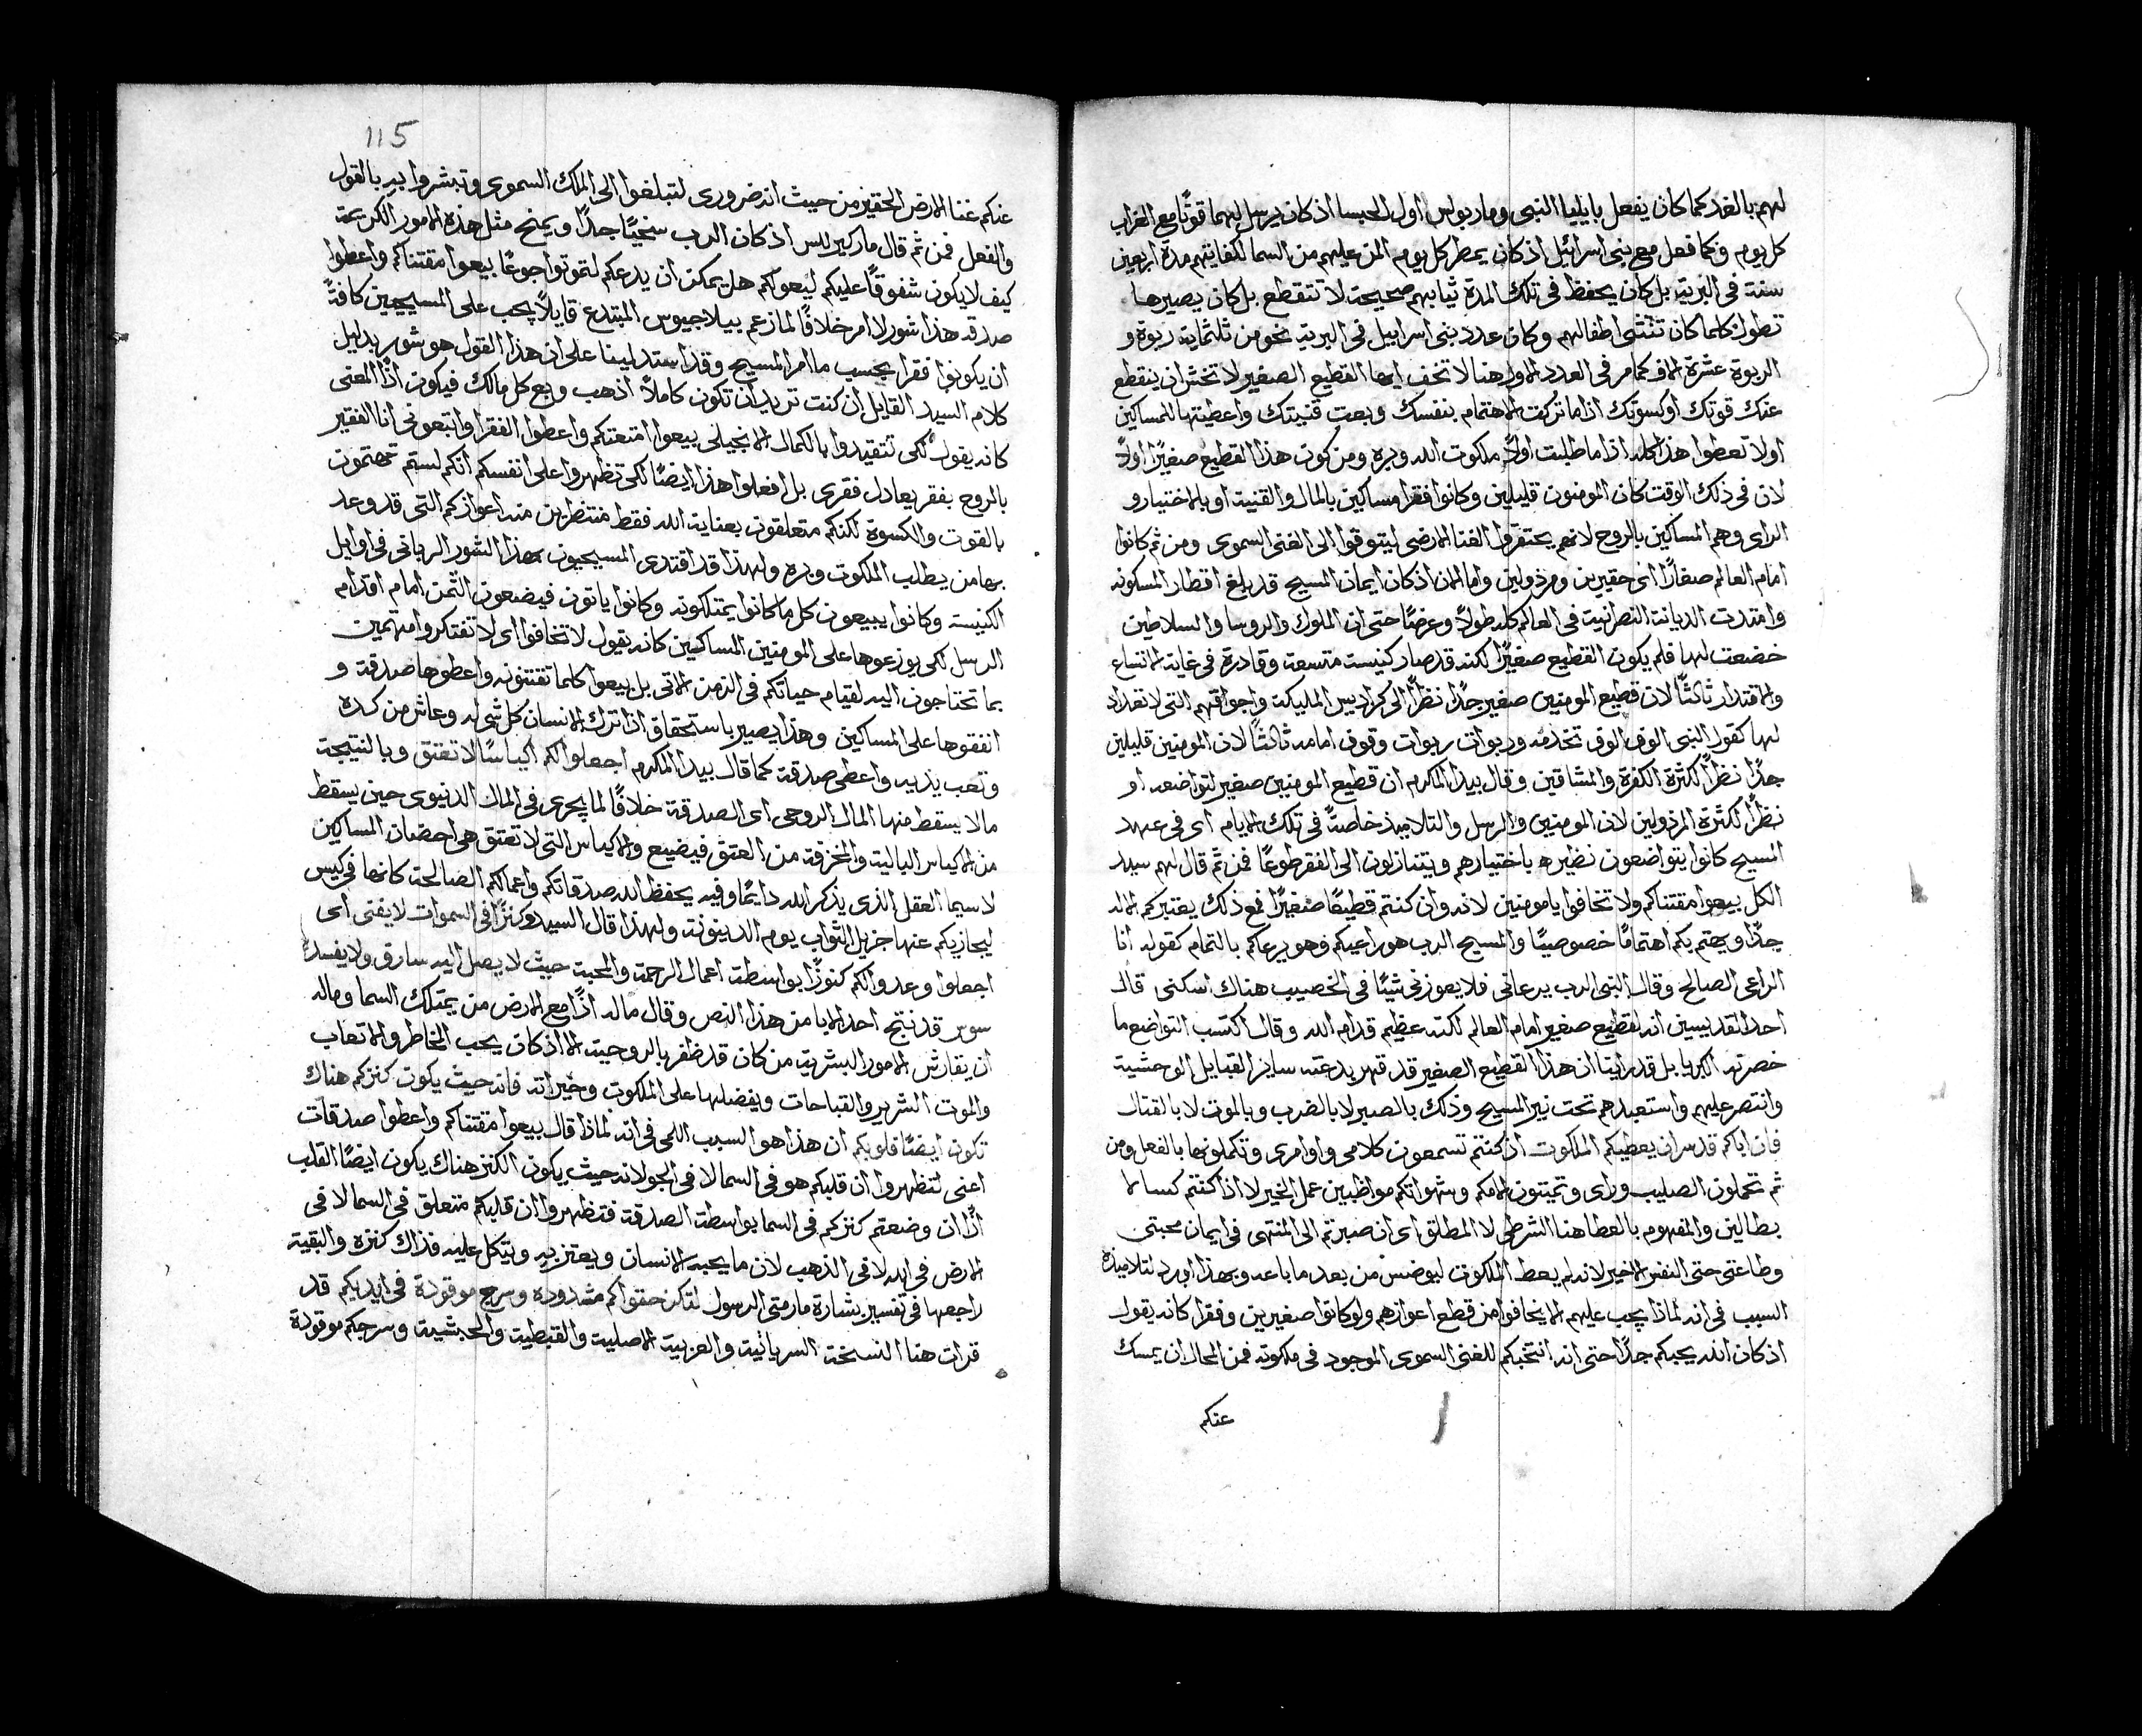 لهم بالغد كما كان يفعل بايليا النبى وماربولس اول الحبسا اذ كان يرسل لهما قوتًا مع الغراب
كل يوم وكما فعل مع بنى اسرائيل اذ كان يمطر كل يوم المن عليهم من السما لكفايتهم مدة اربعين
سنة فى البرية بل كان يحفظ فى تلك المدة ثيابهم صحيحة لا تتقطع بل كان يصيرها
تطول كلما كان تنتشى اطفالهم وكان عدد بنى اسراييل فى البرية نحو من ثلثماية ربوة و
الربوة عشرة الاف كما مر فى العدد الاول هنا لا تخف ايها القطيع الصغير لا تخش ان ينقطع
عنك قوتك او كسوتك اذا ما تركت الاهتمام بنفسك وبعت قنيتك واعطيتها للمساكين
اولا تعطوا هذا كله اذا ما طلبت اولاً ملكوت الله وبره ومن كون هذا القطيع صغيرًا اولاً
لان فى ذلك الوقت كان المومنون قليلين وكانوا فقرا مساكين بالمال والقنية او بالاختيار و
الراى وهم المساكين بالروح لانهم يحتقروا الغنا الارضى ليتوقوا الى الغنى السموى ومن ثم كانوا
امام العالم صغارًا اى حقيرين ومرذولين واما الان اذ كان ايمان المسيح قد بلغ اقطار المسكونه
وامتدت الديانة النصرانية فى العالم كله طولاً وعرضًا حتى ان الملوك والروسا والسلاطين
خضعت لها فلم يكون القطيع صغيرًا لكنه قد صار كنيسة متسعة وقادرة فى غاية الاتساع
والاقتدار ثالثًا لان قطيع المومنين صغير جدًا نظرًا الى كراديس المليكة واجواقهم التى لا تعداد
لها كقول النبى الوف الوف تخدمه وربوات ربوات وقوف امامه ثالثًا لان المومنين قليلين
جدًا نظرًا لكثرة الكفرة والمشاقين وقال بيدا المكرم ان قطيع المومنين صغير لتواضعه او
نظرًا لكثرة المرذولين لان المومنين والرسل والتلاميذ خاصةً فى تلك الايام اى فى عهد
المسيح كانوا يتواضعون نظيره باختيارهم ويتنازلون الى الفقر طوعًا فمن ثم قال لهم سيد
الكل بيعوا مقتناكم ولا تخافوا يا مومنين لانه وان كنتم قطيعًا صغيرًا فمع ذلك يعتبركم الاله
جدًا ويهتم بكم اهتمامًا خصوصيًا والمسيح الرب هو راعيكم وهو يرعاكم بالتمام كقوله انا
الراعى الصالح وقال النبى الرب يرعانى فلا يعوزنى شيئًا فى الخصيب هناك اسكنى قال
احد القديسين انه لقطيع صغير امام العالم لكنه عظيم قدام الله وقال اكتسب التواضع ما
خسرته الكبريا بل قد راينا ان هذا القطيع الصغير قد قهر بدعته ساير القبايل الوحشية
وانتصر عليهم واستعبدهم تحت نير المسيح وذلك بالصبر لا بالضرب وبالموت لا بالقتال
فان اباكم قد سر ان يعطيكم الملكوت اذ كنتم تسمعون كلامى واوامرى وتكملونها بالفعل ومن
ثم تحملون الصليب وراى وتميتون الامكم وشهواتكم مواظبين عمل الخير لا اذا كنتم كسالا
بطالين والمفهوم بالعطا هنا الشرطى لا المطلق اى ان صبرتم الى المنتهى فى ايمان محبتى
وطاعتى حتى النفس الاخير لانه لم يعط الملكوت ليوضس من بعد ما باعه وبهذا اورد لتلاميذه
السبب فى انه لماذا يجب عليهم الا يخافوا من قطع اعوازهم ولو كانوا صغيرين وفقرا كانه يقول
اذ كان الله يحبكم جدًا حتى انه انتخبكم للغنى السموى الموجود فى ملكوته فمن المحال ان يمسك
عنكم
115
عنكم غنا الارض الحقير من حيث انه ضرورى لتبلغوا الى الملك السموى وتبشروا به بالقول
والفعل فمن ثم قال مار كيرللس اذ كان الرب سخيًا جدًا ويمنح مثل هذه الامور الكريمة
كيف لا يكون شفوقًا عليكم ليعولكم هل يمكن ان يدعكم لتموتوا جوعًا بيعوا مقتناكم واعطوا
صدقه هذا شور لا امر خلافًا لما زعم بيلاجيوس المبتدع قايلاً يجب على المسيحيين كافةً
ان يكونوا فقرا بحسب ما امر المسيح وقد استدلينا على ان هذا القول هو شور بدليل
كلام السيد القايل ان كنت تريد ان تكون كاملاً اذهب وبع كل مالك فيكون اذًا المعنى
كانه يقول لكى تتقيدوا بالكمال الانجيلى بيعوا امتعتكم واعطوا الفقرا واتبعونى انا الفقير
بالروح بفقر يعادل فقرى بل افعلوا هذا ايضًا لكى تظهروا على انفسكم انكم لستم تهتمون
بالقوت والكسوة لكنكم متعلقون بعناية الله فقط منتظرين منه اعوازكم التى قد وعد
بها من يطلب الملكوت وبره ولهذا قد اقتدى المسيحيون بهذا الشور الربانى فى اوايل
الكنيسة وكانوا يبيعون كل ما كانوا يمتلكونه وكانوا ياتون فيضعون الثمن امام اقدام
الرسل لكى يوزعوها على المومنين المساكين كانه يقول لا تخافوا اى لا تفتكروا مهتمين
بما تحتاجون اليه لقيام حياتكم فى الزمن الاتى بل بيعوا كلما تقتنونه واعطوها صدقة و
انفقوها على المساكين وهذا يصير باستحقاق اذا ترك الانسان كل شى له وعاش من كده
وتعب يديه واعطى صدقة كما قال بيدا المكرم اجعلوا لكم اكياسًا لا تعتق وبالنتيجة
مالا يسقط منها المال الروحى اى الصدقة خلافًا لما يجرى فى المال الدنيوى حين يسقط
من الاكياس البالية والمخزقة من العتق فيضيع والاكياس التى لا تعتق هى احضان المساكين
لا سيما العقل الذى يذكر الله دايمًا وفيه يحفظ الله صدقاتكم واعمالكم الصالحة كانها فى كيس
ليجازيكم عنها جزيل الثواب يوم الدينونة ولهذا قال السيد وكنزًا فى السموات لا يفنى اى
اجعلوا وعدوا لكم كنوزًا بواسطة اعمال الرحمة والمحبة حيث لا يصل اليه سارق ولا يفسده
سوس قد نتج احد الابا من هذا النص وقال ماله اذًا مع الارض من يمتلك السما وماله
ان يقارش الامور البشرية من كان قد ظفر بالروحية الا اذ كان يحب المخاطر والاتعاب
والموت الشرير والقباحات ويفضلها على الملكوت وخيراته فانه حيث يكون كنزكم هناك
تكون ايضًا قلوبكم ان هذا هو السبب اللمى فى انه لماذا قال بيعوا مقتناكم واعطوا صدقات
اعنى لتظهروا ان قلبكم هو فى السما لا فى الجو لانه حيث يكون الكنز هناك يكون ايضًا القلب
اذًا ان وضعتم كنزكم فى السما بواسطة الصدقة فتظهروا ان قلبكم متعلق فى السما لا فى
الارض فى الله لا فى الذهب لان ما يحبه الانسان ويعتز به ويتكل عليه فذاك كنزه والبقية
راجعها فى تفسير بشارة مار متى الرسول لتكن حقواكم مشدوده وسرج موقودة فى ايديكم قد
قرات هنا النسخة السريانية والعربية الاصلية والقبطية والحبشية وسرجكم موقودة